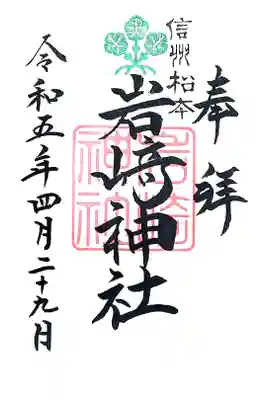 奉拝
信州松本
岩﨑神社
岩崎神社
令和五年四月二十九日